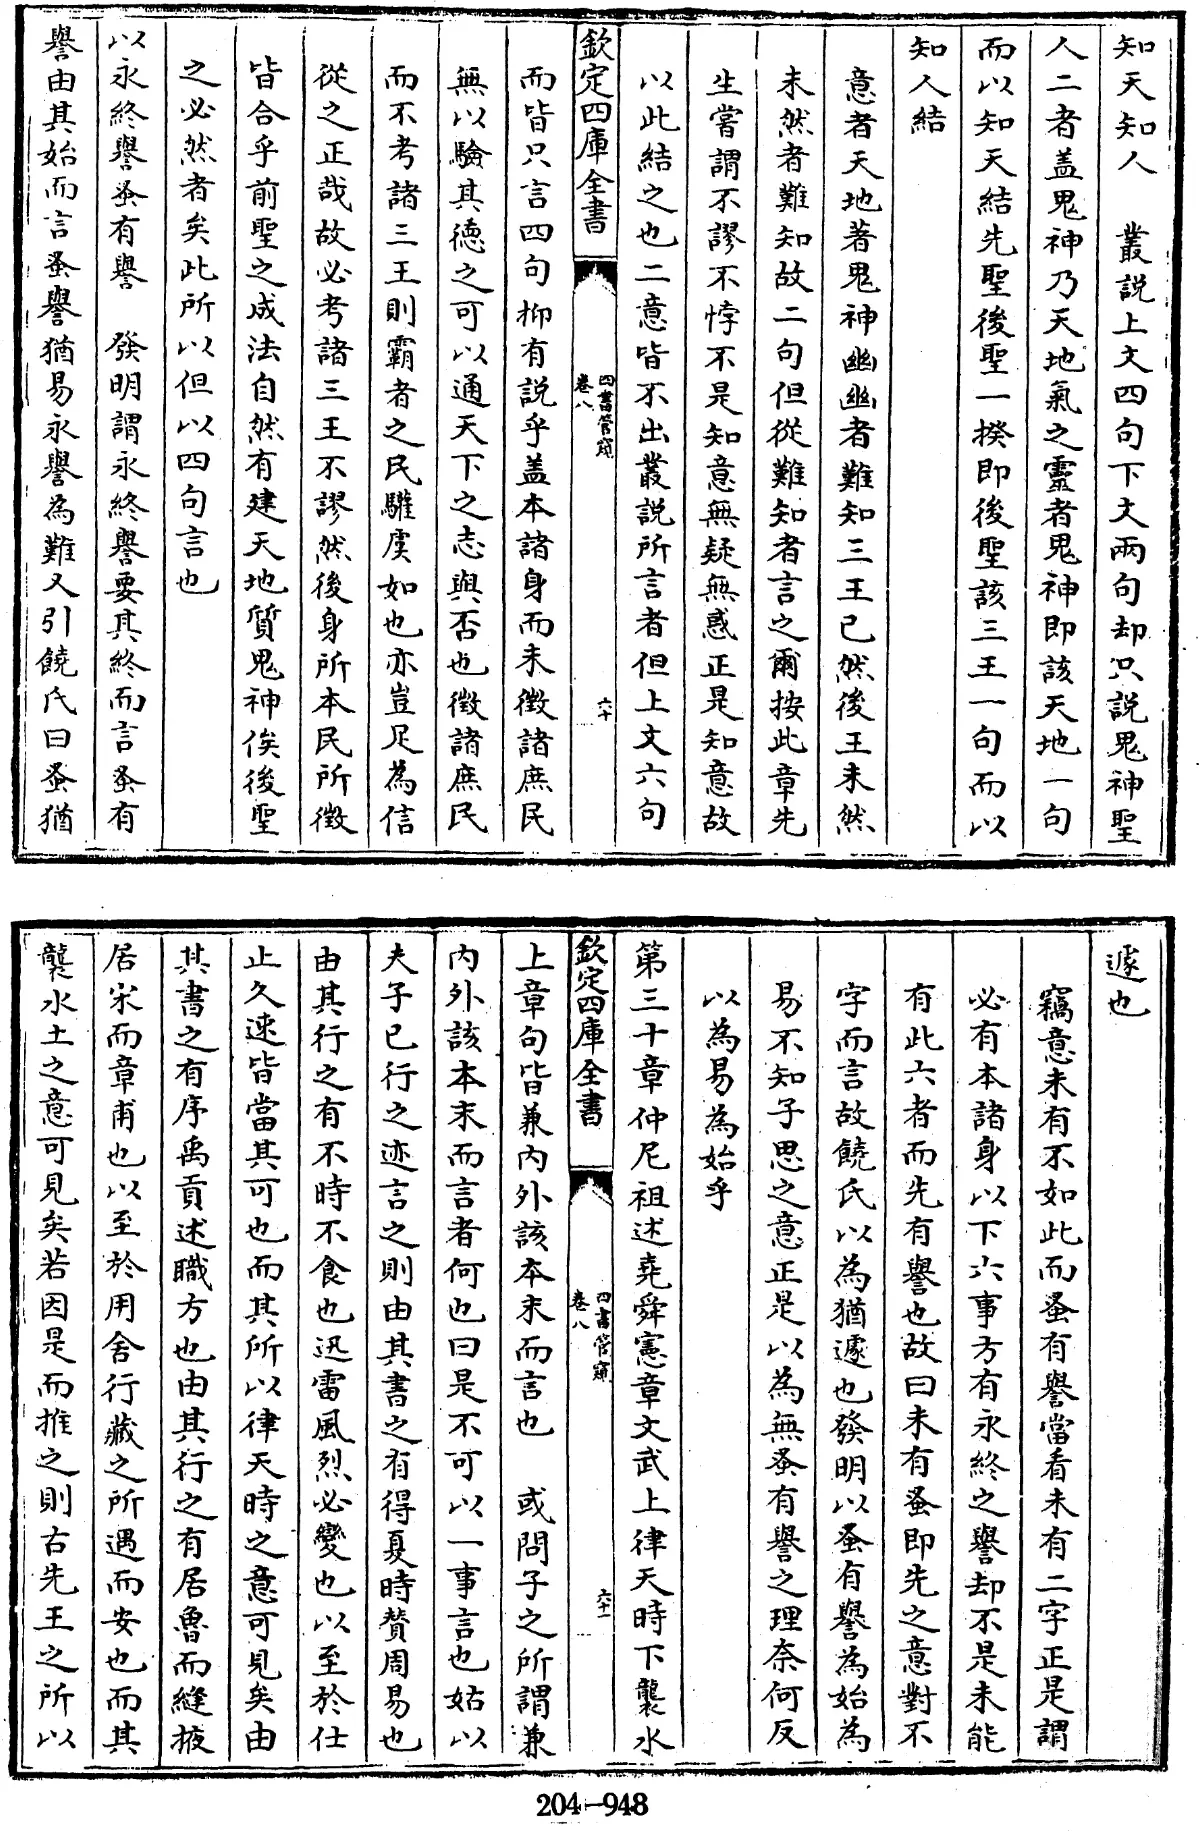 知天知人　叢説上文四句下文兩句却只説鬼神聖
人二者盖鬼神乃天地氣之靈者鬼神即該天地一句
而以知天結先聖後聖一揆即後聖該三王一句而以
知人結
意者天地著鬼神幽幽者難知三王已然後王未然
未然者難知故二句但從難知者言之爾按此章先
生嘗謂不謬不悖不是知意無疑無惑正是知意故
以此結之也二意皆不出叢説所言者但上文六句
欽定四庫全書
四書管窺
卷八
六十
而皆只言四句抑有説乎盖本諸身而未徴諸庶民
無以驗其德之可以通天下之志與否也徴諸庶民
而不考諸三王則霸者之民驩虞如也亦豈足為信
從之正哉故必考諸三王不謬然後身所本民所徴
皆合乎前聖之成法自然有建天地質鬼神俟後聖
之必然者矣此所以但以四句言也
以永終譽蚤有譽　發明謂永終譽要其終而言蚤有
譽由其始而言蚤譽猶易永譽為難又引饒氏曰蚤猶
遽也
竊意未有不如此而蚤有譽當看未有二字正是謂
必有本諸身以下六事方有永終之譽却不是未能
有此六者而先有譽也故曰未有蚤即先之意對不
字而言故饒氏以為猶遽也發明以蚤有譽為始為
易不知子思之意正是以為無蚤有譽之理奈何反
以為易為始乎
第三十章仲尼祖述堯舜憲章文武上律天時下襲水
欽定四庫全書
四書管窺
卷八
六十一
上章句皆兼内外該本末而言也　或問子之所謂兼
内外該本末而言者何也曰是不可以一事言也姑以
夫子已行之迹言之則由其書之有得夏時贊周易也
由其行之有不時不食也迅雷風烈必變也以至於仕
止久速皆當其可也而其所以律天時之意可見矣由
其書之有序禹貢述職方也由其行之有居魯而縫掖
居宋而章甫也以至於用舍行藏之所遇而安也而其
襲水土之意可見矣若因是而推之則古先王之所以
204-948